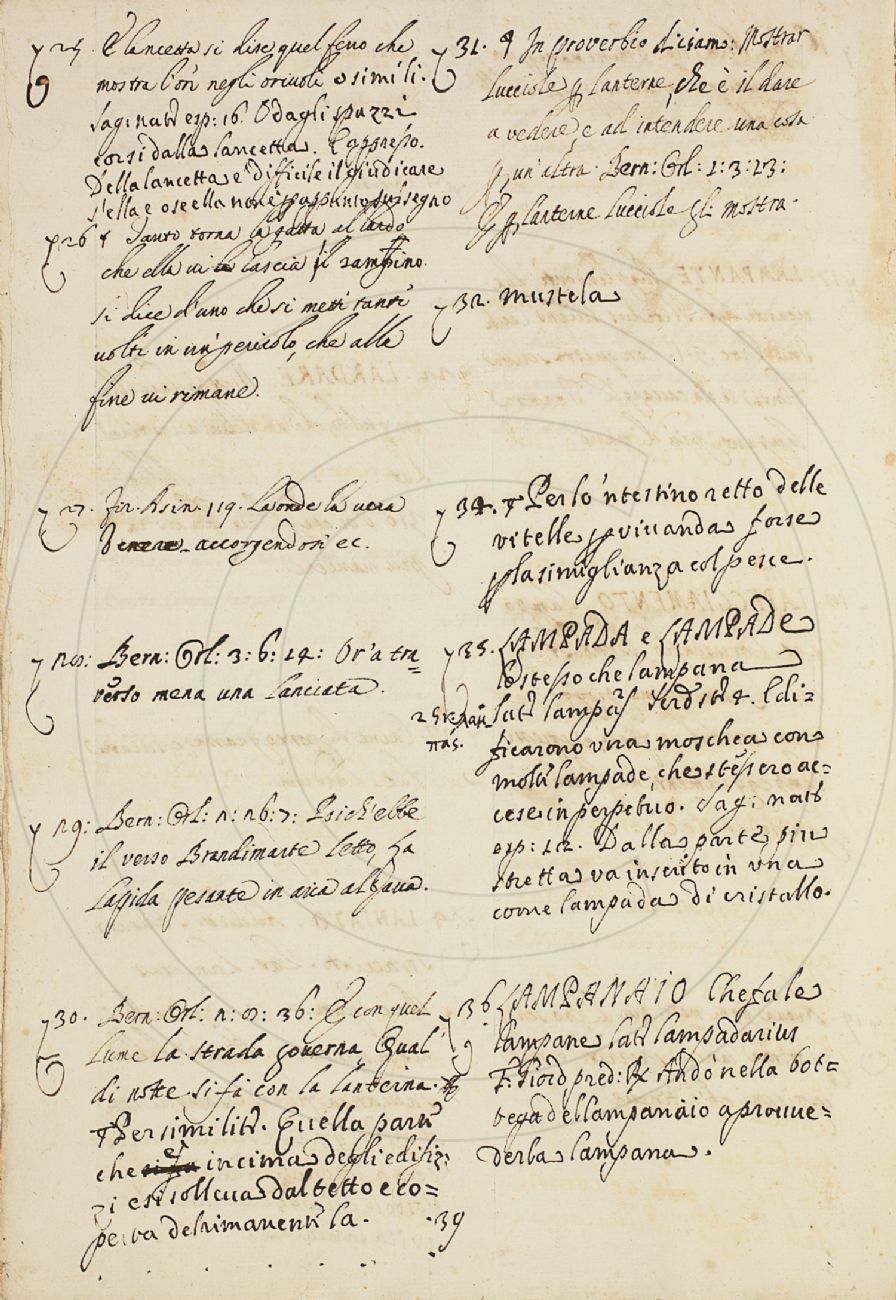 25. E lancetta si dice quel ferro che
mostra l'ori negli oriuoli e simili.
Sag: nat: esp: 16. O dagli spazzi
corsi dalla lancetta. E appresso.
Della lancetta è difficile il giudicare
s'ella è o se ella non è appunto sul segno
26 Tanto torna la gatta al lardo
che ella vi lascia il zampino.
si dice d'uno che si metti tanti
volti in un pericolo, che alla
fine vi rimane.
27. Fir. Asin. 119. Laonde la vera
Venere accorgendosi ec.
n8: Bern: Orl: 3: 6: 14: Or'a tra=
verso mena una lanciata.
n9: Bern: Orl: n: n6: 7: Poich'ebbe
il verso Brandimarte letto, La
lapida pesante in aria alzava.
30. Bern: Orl: n: 8: 36: E con quel
lume la strada governa Qual
di notte si fa con la lanterna.
Per similit. Quella parte
che è in cima degli edifiz:
zi e si solleva dal tetto e co=
perta del rimanente la.
31. In proverbio diciamo: Mostrar
lucciole p lanterne, che è il dare
a vedere, e ad intendere una cosa
p un'altra. Bern: Orl: 1: 3: 23:
E p lanterne lucciole gli mostra.
32. Mustela
34. Per lo 'ntestino retto delle
vitelle p vivanda forse
p la simiglianza col pesce.
35. LAMPADA e LAMPADe
lo stesso che lampana
lat lampas 4. Edi=
ficarono una moschea con
molte lampade, che stessero ac=
cese in perpetuo. Sag: nat
esp: 12. Dalla parte piu
stretta va inserito in una
come lampada di cristallo.
36 LAMPANAIO Che fa le
lampane lat lampadarius
F. Giord pred: R Andò nella bot=
tega del lampanaio a provve=
der la lampana.
39